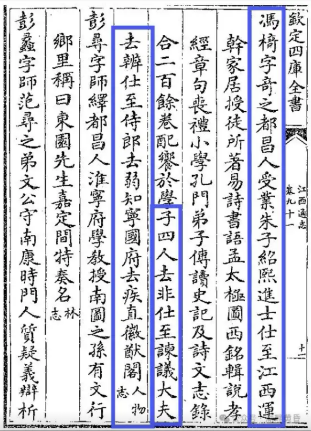 欽定四庫全書
江西通志
卷九十一
馮椅字奇之都昌人受業朱子紹熙進士仕至江西運
幹家居授徒所著易詩書語孟太極圖西銘輯說孝
經章句喪禮小學孔門弟子傳讀史記及詩文志錄
合二百餘卷配饗於學子四人去非仕至諫議大夫
去辨仕至侍郎去弱知寧國府去疾直徽猷閣人物志
彭尋字師繹都昌人淮寧府學教授南圖之孫有文行
鄉里稱曰東園先生嘉定間特奏名林志
彭蠡字師范尋之弟文公守南康時門人質疑義辯析